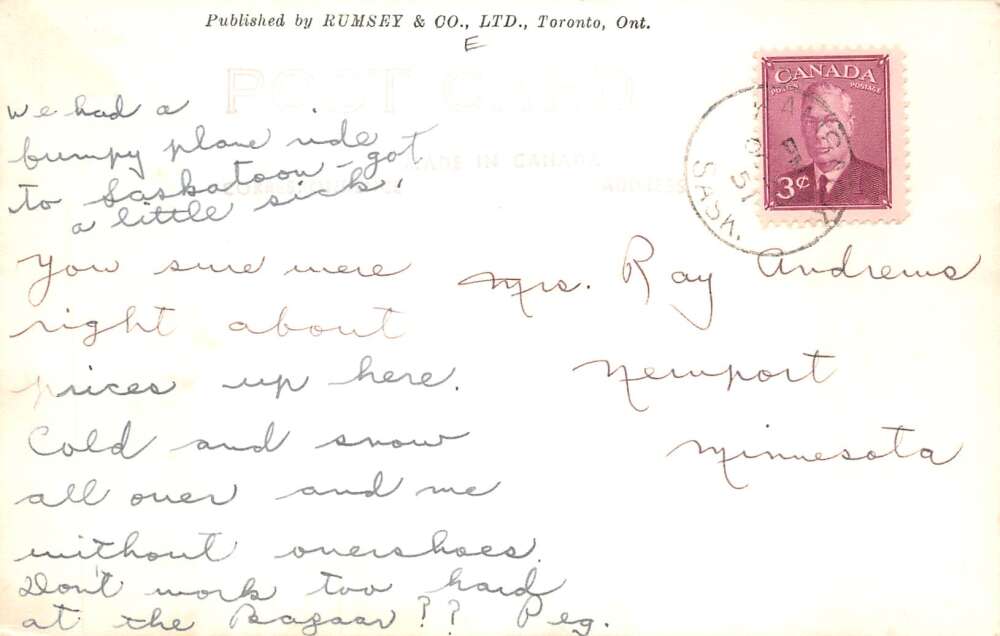 Published by RUMSEY & CO., LTD., Toronto, Ont.
E
POST CARD
MADE IN CANADA
ADDRESS
CANADA
POSTES POSTAGE
3¢
PM
51
SASK.
we had a
bumpy plane ride
to Saskatoon - got
a little sick.
You sure were
right about
prices up here.
Cold and snow
all over and me
without overshoes.
Don't work too hard
at the Bazaar?? Peg.
Mrs. Ray Andrews
Newport
Minnesota